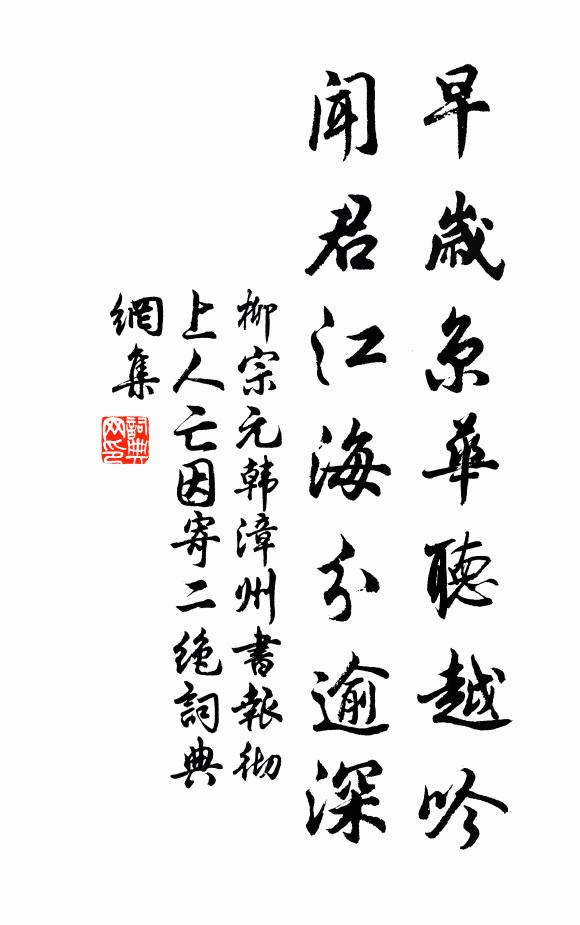 早歲京華聽越吟
聞君江海分逾深
柳宗元韩漳州書報彻
上人亡因寄二绝詞典
網集
詞典
网印